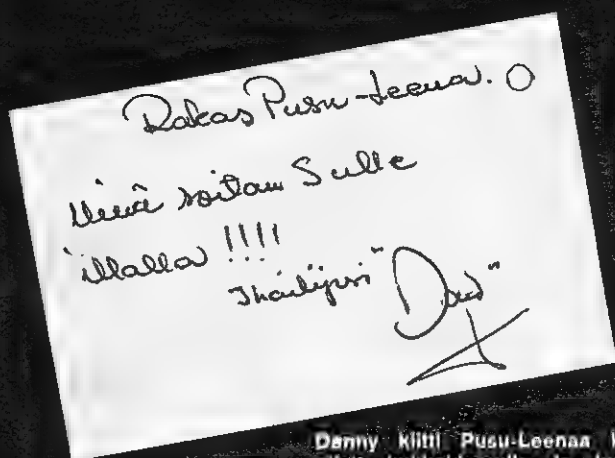 Rakas Pusu-Leena. O
Minä soitan Sulle
illalla !!!!
Ihailijasi "Dad"
Danny kiitti Pusu-Leenaa